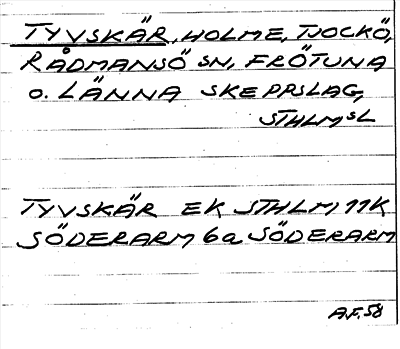 TYVSKÄR, HOLME, TJOCKÖ,
RÅDMANSÖ SN, FRÖTUNA
O. LÄNNA SKEPPSLAG,
STHLMSL
TYVSKÄR EK STHLM 11K
SÖDERARM 6a SÖDERARM
A.F. 58